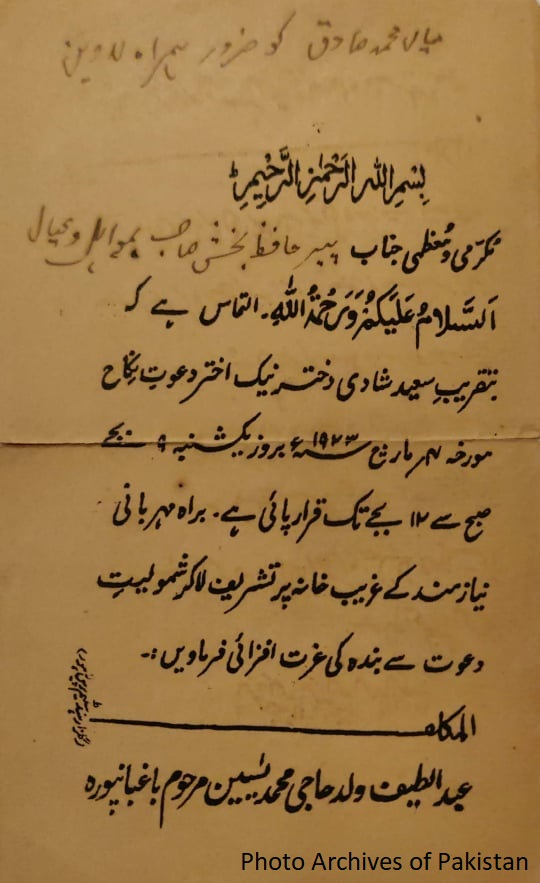 میاں محمد صادق کو ضرور ہمراہ لاویں
بِسْمِ اللهِ الرَّحْمٰنِ الرَّحِيْمِ ط
مکرّمی و مُعظمی جناب پیر حافظ بخش صاحب بمواہل وعیال
اَلسَّلَامُ عَلَیْکُمْ وَرَحْمَۃُ اللهِ۔ التماس ہے کہ
بتقریبِ سعید شادی دختر نیک اختر دعوتِ نکاح
مورخہ ۴ مارچ ۱۹۲۳ء بروز یکشنبہ ۹ بجے
صبح سے ۱۲ بجے تک قرار پائی ہے۔ براہ مہربانی
نیازمند کے غریب خانہ پر تشریف لاکر شمولیتِ
دعوت سے بندہ کی عزت افزائی فرماویں :۔
المکلف
عبداللطیف ولد حاجی محمد یٰسین مرحوم باغبانپورہ
Photo Archives of Pakistan